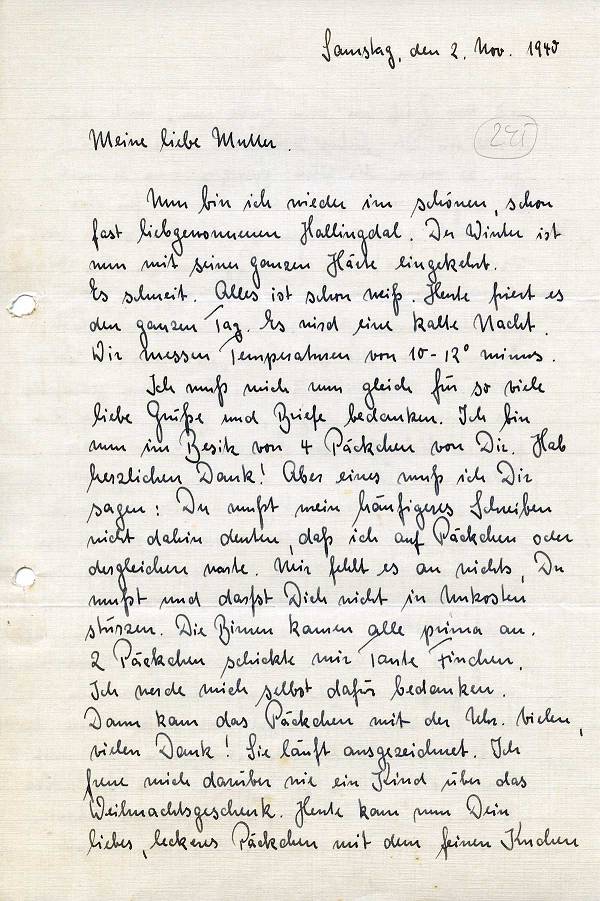 Samstag, den 2. Nov. 1940
241
Meine liebe Mutter.
Nun bin ich wieder im schönen, schon
fast liebgewonnenen Hallingdal. Der Winter ist
nun mit seiner ganzen Härte eingekehrt.
Es schneit. Alles ist schon weiß. Heute friert es
den ganzen Tag. Es wird eine kalte Nacht.
Wir messen Temperaturen von 10-12° minus.
Ich muß mich nun gleich für so viele
liebe Grüße und Briefe bedanken. Ich bin
nun im Besitz von 4 Päckchen von Dir. Hab
herzlichen Dank! Aber eines muß ich Dir
sagen: Du mußt mein häufigeres Schreiben
nicht dahin deuten, daß ich auf Päckchen oder
dergleichen warte. Mir fehlt es an nichts, Du
mußt und darfst Dich nicht in Unkosten
stürzen. Die Birnen kamen alle prima an.
2 Päckchen schickte mir Tante Finchen.
Ich werde mich selbst dafür bedanken.
Dann kam das Päckchen mit der Uhr. Vielen,
vielen Dank! Sie läuft ausgezeichnet. Ich
freue mich darüber wie ein Kind über das
Weihnachtsgeschenk. Heute kam nun Dein
liebes, leckeres Päckchen mit dem feinen Kuchen